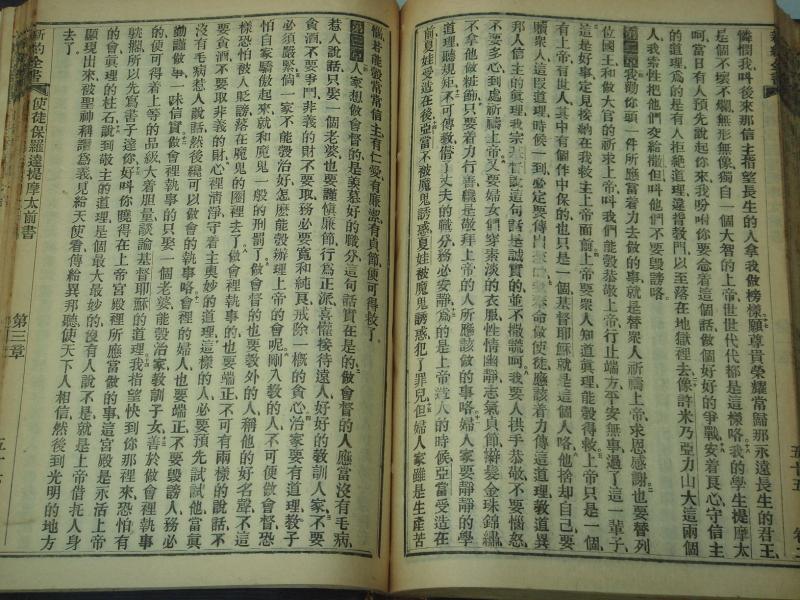 憐憫我叫後來那信主指望長生的人拿我做榜樣願尊貴榮耀當歸那永遠長生的君王
是個不壞不爛無形無像獨自一個大智的上帝世世代代都是這樣咯我的學生提摩太
呵當日有人預先說你來我吩咐你要念着這個話做個好好的爭戰安着良心守信主
的道理爲的是有人拒絕道理違背教門以至落在地獄裡去像許米乃亞力山大這兩個
人我索性把他們交給撒但叫他們不要毀謗咯
第二章我勸你頭一件所應當着力去做的事就是替衆人祈禱上帝求恩感謝也要替列
位國王和做大官的祈求上帝叫我們能彀恭敬上帝行止端方平安無事過了這一輩子
這是好事定見接納在我救主上帝面前上帝要衆人知道眞理能彀得救上帝只是一個
有上帝有世人其中有個作中保的也只是一個基督耶穌就是這個人咯他捨却自己要
贖衆人這段道理時候一到必定要傳
做使徒應該着力傳這道理教道異
邦人信主的眞理我宗基督說這句話是誠實的並不撒謊呵我要人拱手恭敬不要惱怒
不要多心到處祈禱上帝又要婦女們穿素淡的衣服性情幽靜志氣貞節辮髮金珠錦繡
不拿他做粧飾只要着力行善纔是敬拜上帝的人所應該做的事咯婦人家要靜靜的學
道理聽規矩不可傳教僭了丈夫的職分務必安靜爲的是上帝造人的時候亞當受造在
前夏娃受造在後亞當不被魔鬼誘惑夏娃被魔鬼誘惑犯了罪兒但婦人家雖是生產苦
惱若能彀常常信主有仁愛有廉潔有貞節便可得救了
第三章人家想做會督的是羨慕好的職分這句話實在是的做會督的人應當沒有毛病
惹人說話只娶一個老婆也要謹愼廉節行爲正派喜懽接待遠人好好的教訓人家不要
貪酒不要爭鬥非義的財不要取務必要寬和純良戒除一槪的貪心治家要有道理教子
必須嚴緊倘一家不能彀治好怎麽能彀辦理上帝的會呢剛入教的人不可便做會督恐
怕自家驕傲起來就和魔鬼一般的刑罰了做會督的也要教外的人稱他的好名聲不這
樣恐怕被人貶謗落在魔鬼的圈裡去了做會裡執事的也要端正不可有兩樣的說話不
要貪酒不要取非義的財心裡清淨守着主奧妙的道理這樣的人必要預先試試他當眞
沒有毛病惹人說話然後纔可以做會的執事咯會裡的婦人也要端正不要毀謗人務必
勤謹做事一味信實做會裡執事的只娶一個老婆能彀治家教訓子女善於做會裡執事
的便可得着上等的品級大着胆量談論基督耶穌的道理我指望快到你那裡來恐怕有
躭擱所以先寫書子達你好叫你曉得在上帝宮殿裡所應當做的事這宮殿是永活上帝
的會眞理的柱石說到敬主的道理是個最大最妙的沒有人說不是就是上帝借托人身
顯現出來被聖神稱讚爲義見給天使看傳給異邦聽使天下人相信然後到光明的地方
去了
新約全書
使徒保羅達提摩太前書
第三章